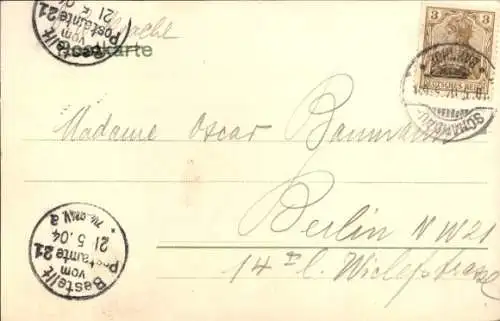 Postkarte
Bestellt
vom
Postamte 21
21 5.04
3
DEUTSCHES REICH
SCHANDAU
Madame Oscar Baumann
Berlin NW 21
14 I l. Wiclefstrasse
Bestellt
vom
Postamte 21
21 5.04